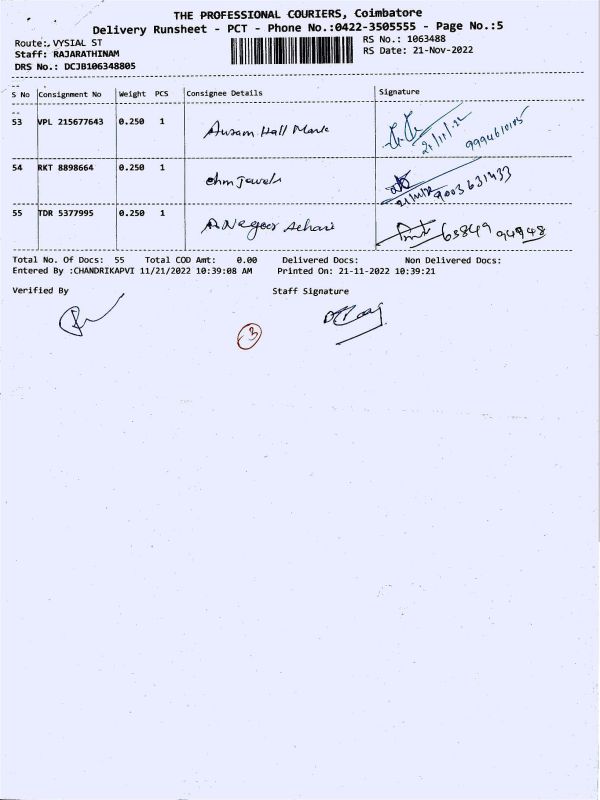 THE PROFESSIONAL COURIERS, Coimbatore
Delivery Runsheet - PCT - Phone No.:0422-3505555 - Page No.:5
Route: VYSIAL ST
RS No.: 1063488
Staff: RAJARATHINAM
RS Date: 21-Nov-2022
DRS No.: DCJB106348805
S No Consignment No Weight PCS Consignee Details Signature
53 VPL 215677643 0.250 1 Hall Mark 21/11/22 9994610105
54 RKT 8898664 0.250 1 ehm Jewels 21/11/22 9003631433
55 TDR 5377995 0.250 1 63849 94948
Total No. Of Docs: 55 Total COD Amt: 0.00 Delivered Docs: Non Delivered Docs:
Entered By :CHANDRIKAPVI 11/21/2022 10:39:08 AM Printed On: 21-11-2022 10:39:21
Verified By Staff Signature
3